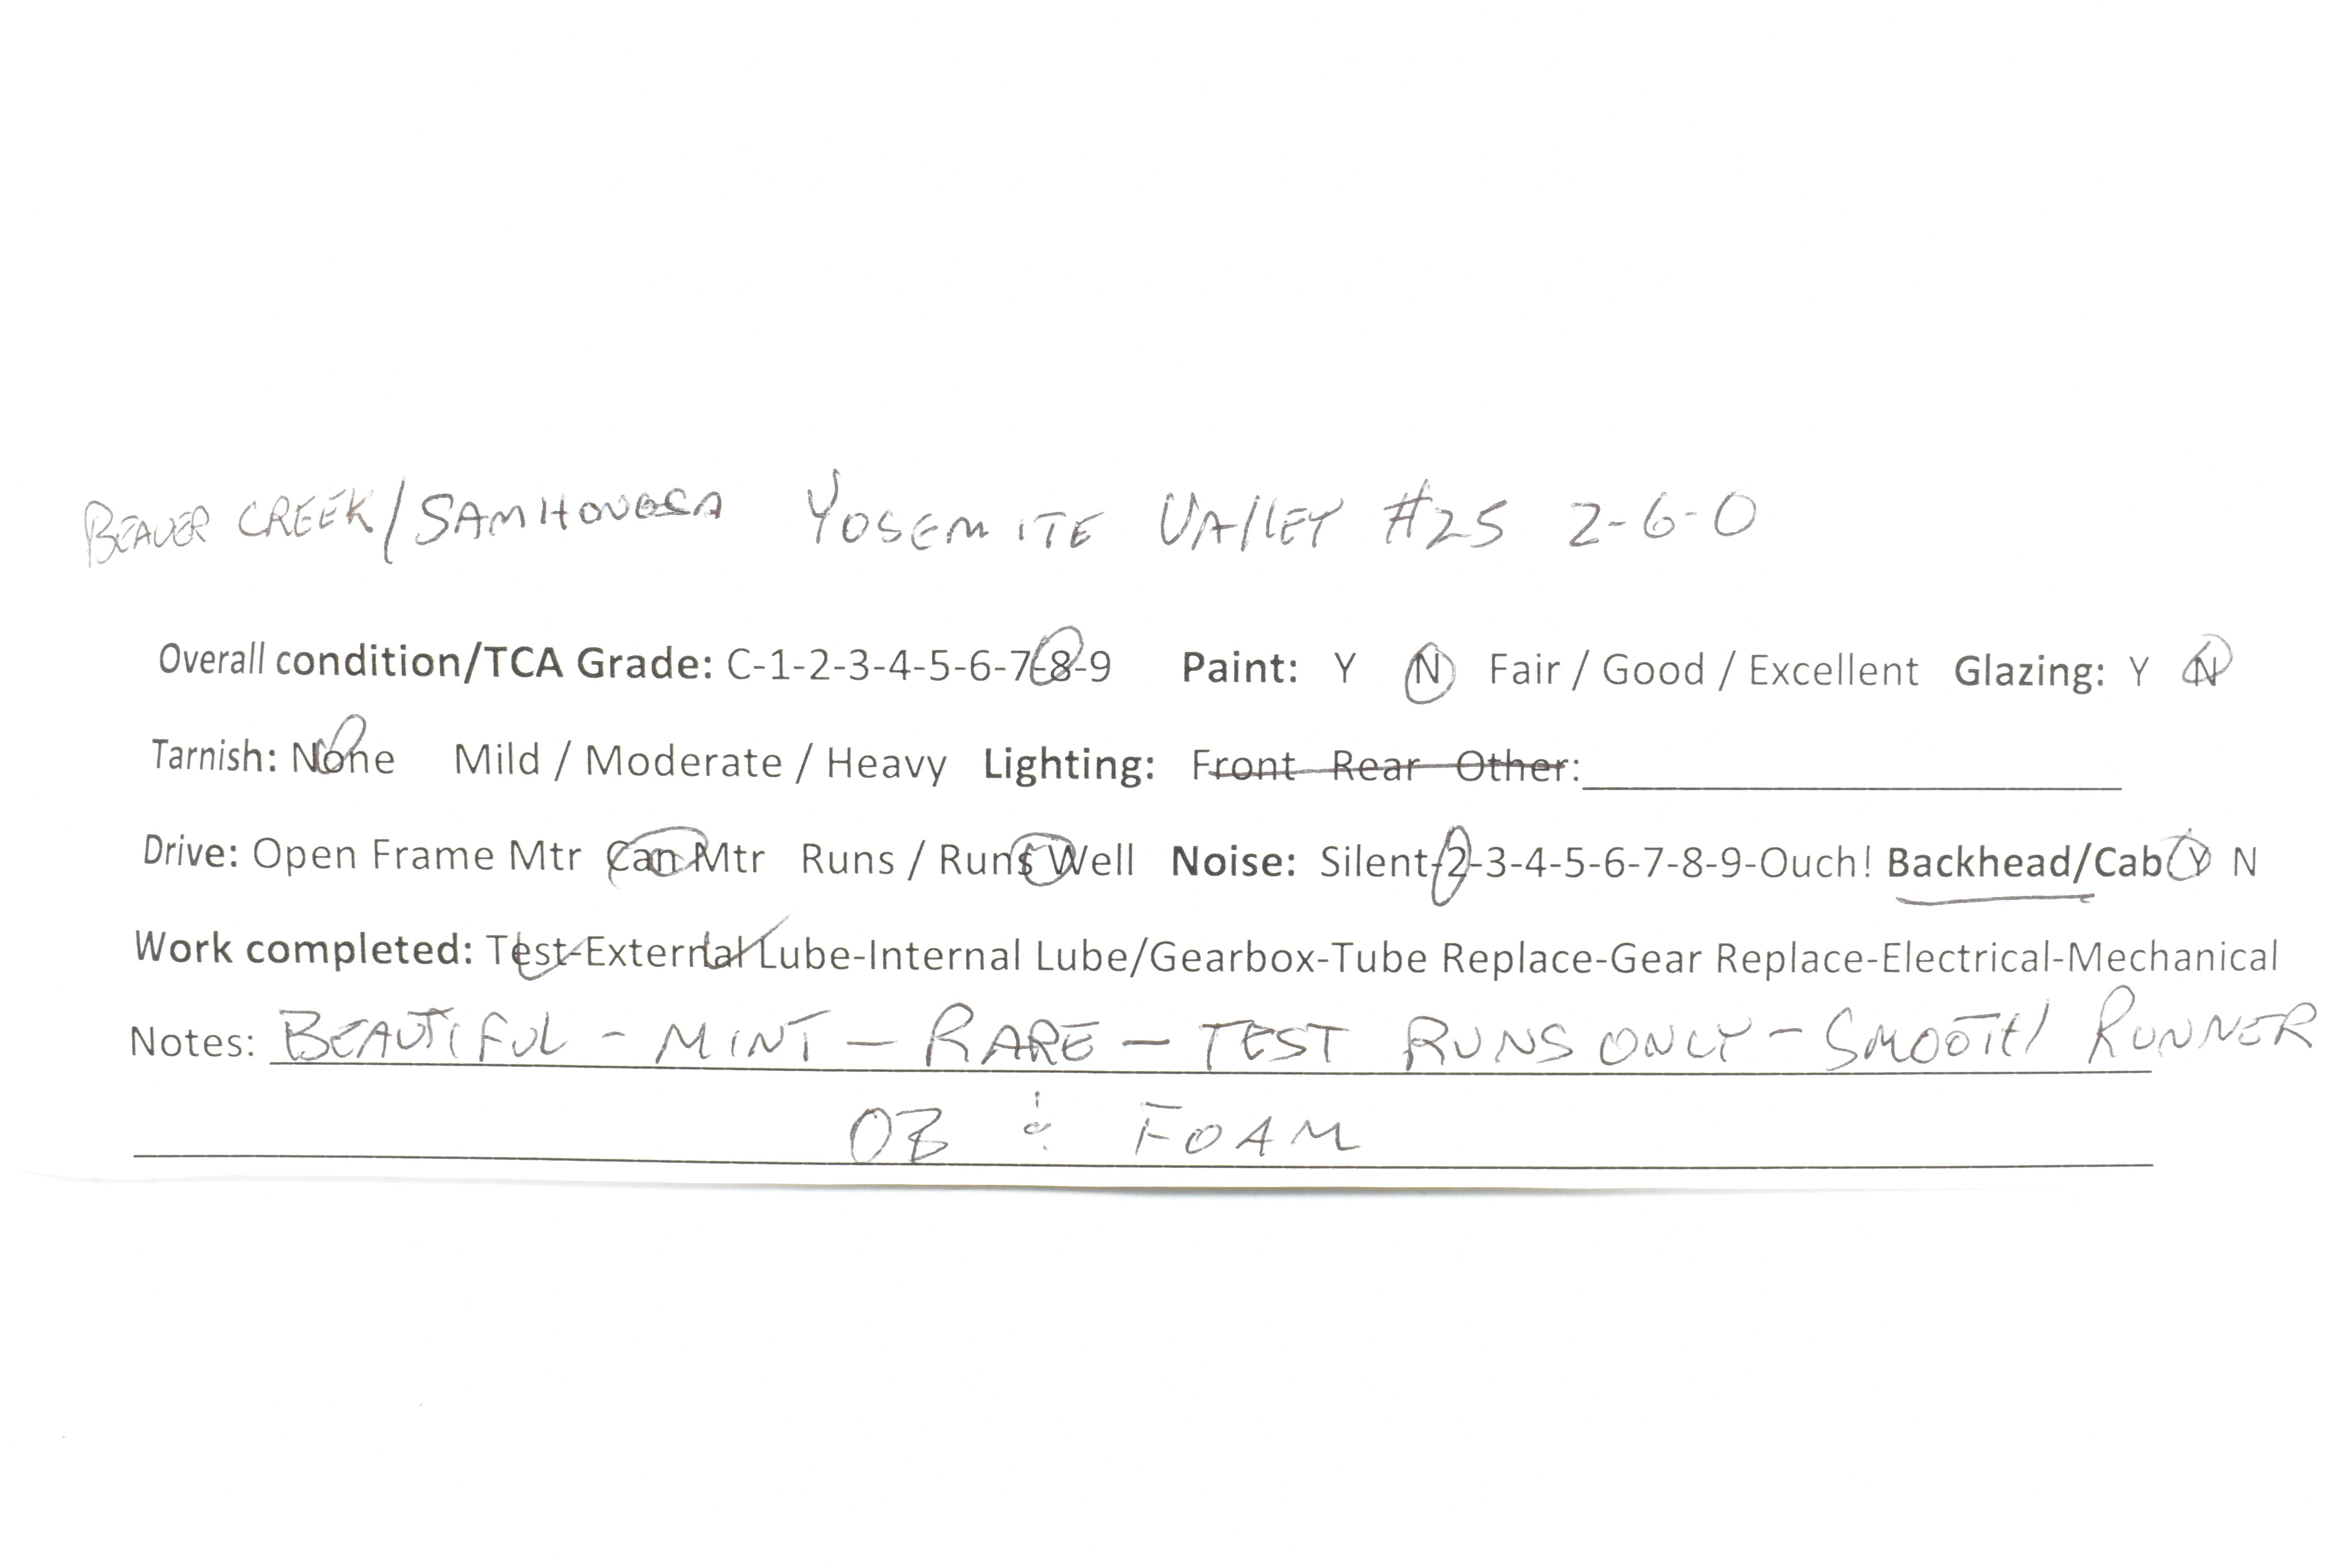 BEAVER CREEK/SAMHONGSA YOSEMITE VALLEY #25 2-6-0
Overall condition/TCA Grade: C-1-2-3-4-5-6-7-8-9 Paint: Y N Fair / Good / Excellent Glazing: Y N
Tarnish: None Mild / Moderate / Heavy Lighting: Front Rear Other:
Drive: Open Frame Mtr Can Mtr Runs / Runs Well Noise: Silent-2-3-4-5-6-7-8-9-Ouch! Backhead/Cab Y N
Work completed: Test-External Lube-Internal Lube/Gearbox-Tube Replace-Gear Replace-Electrical-Mechanical
Notes: BEAUTIFUL - MINT - RARE - TEST RUNS ONLY - SMOOTH RUNNER
OB & FOAM